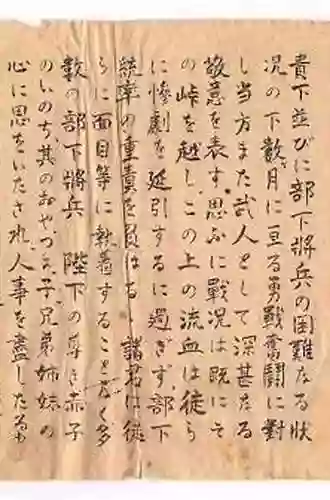 貴下並びに部下將兵の困難なる狀
況の下數月に亘る勇戰奮鬪に對
し当方また武人として深甚なる
敬意を表す、思ふに戰況は既にそ
の峠を越し、この上の流血は徒ら
に慘劇を延引するに過ぎず、部下
統率の重責を負はる、諸君には徒
らに面目等に執着することなく多
数の部下將兵 陛下の尊き赤子
のいのち、其のおやつま子兄弟姉妹の
心に思をいたされ、人事を盡したる